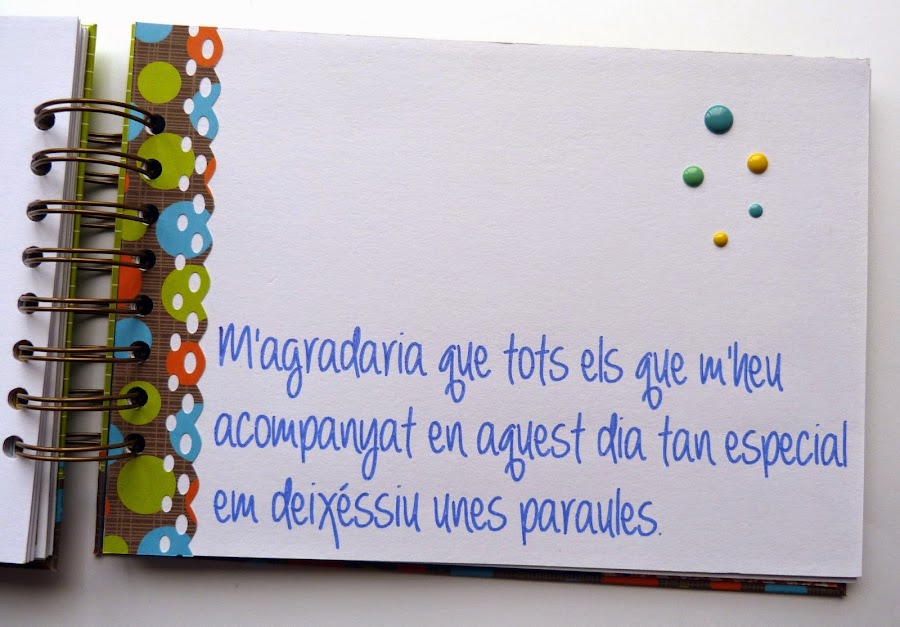 M'agradaria que tots els que m'heu
acompanyat en aquest dia tan especial
em deixéssiu unes paraules.